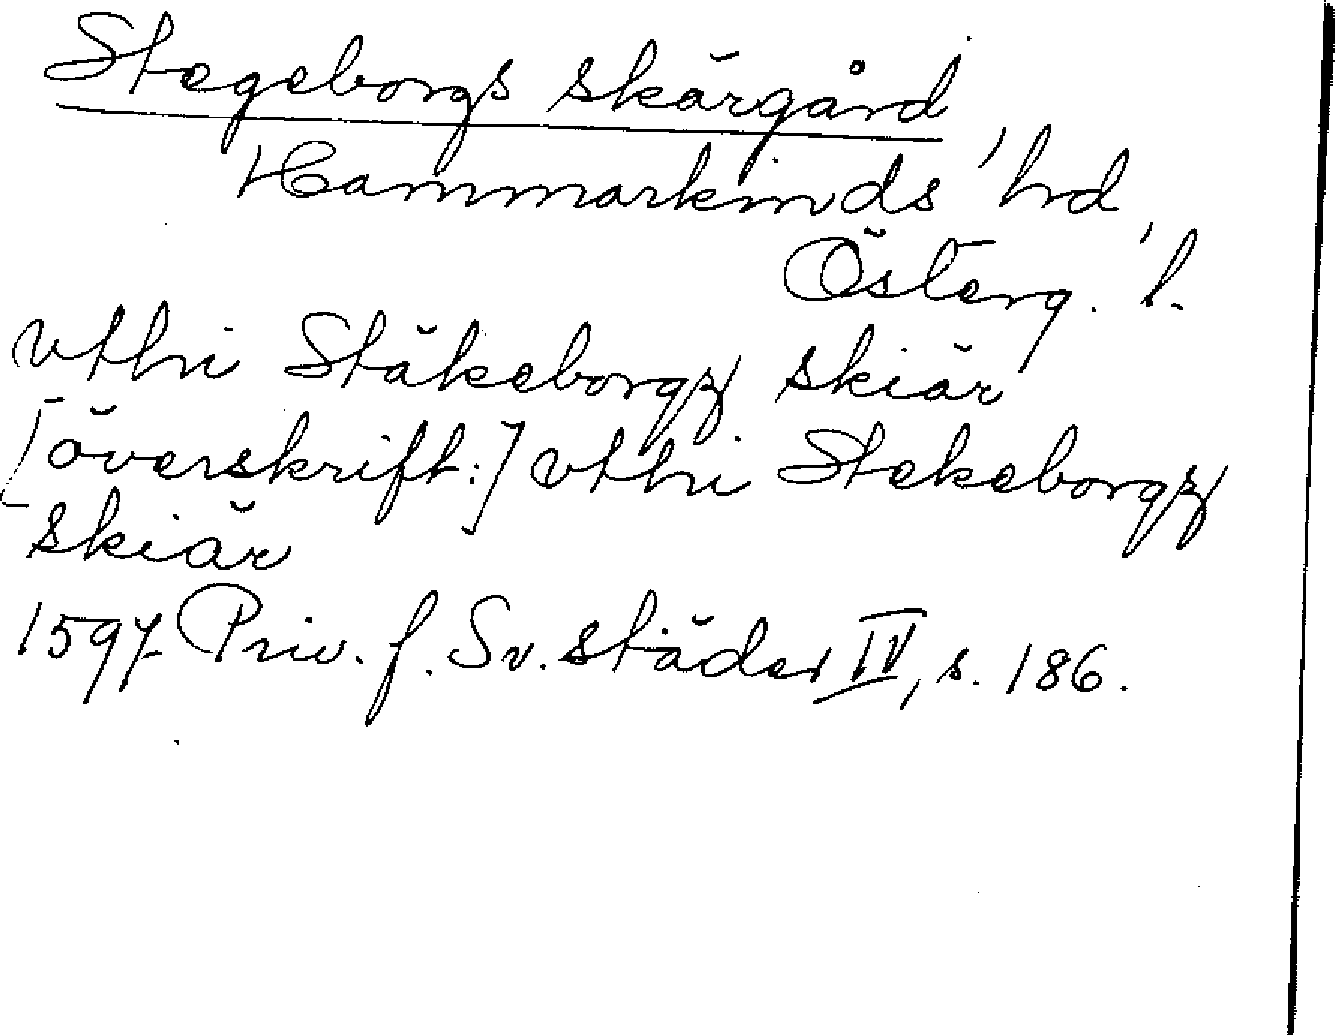 Stegeborgs skärgård
Hammarkinds hd
Österg. l.
vthi Stäkeborgz skiär
[överskrift:] vthi Stekeborgz
skiär
1597 Priv. f. Sv. städer IV, s. 186.